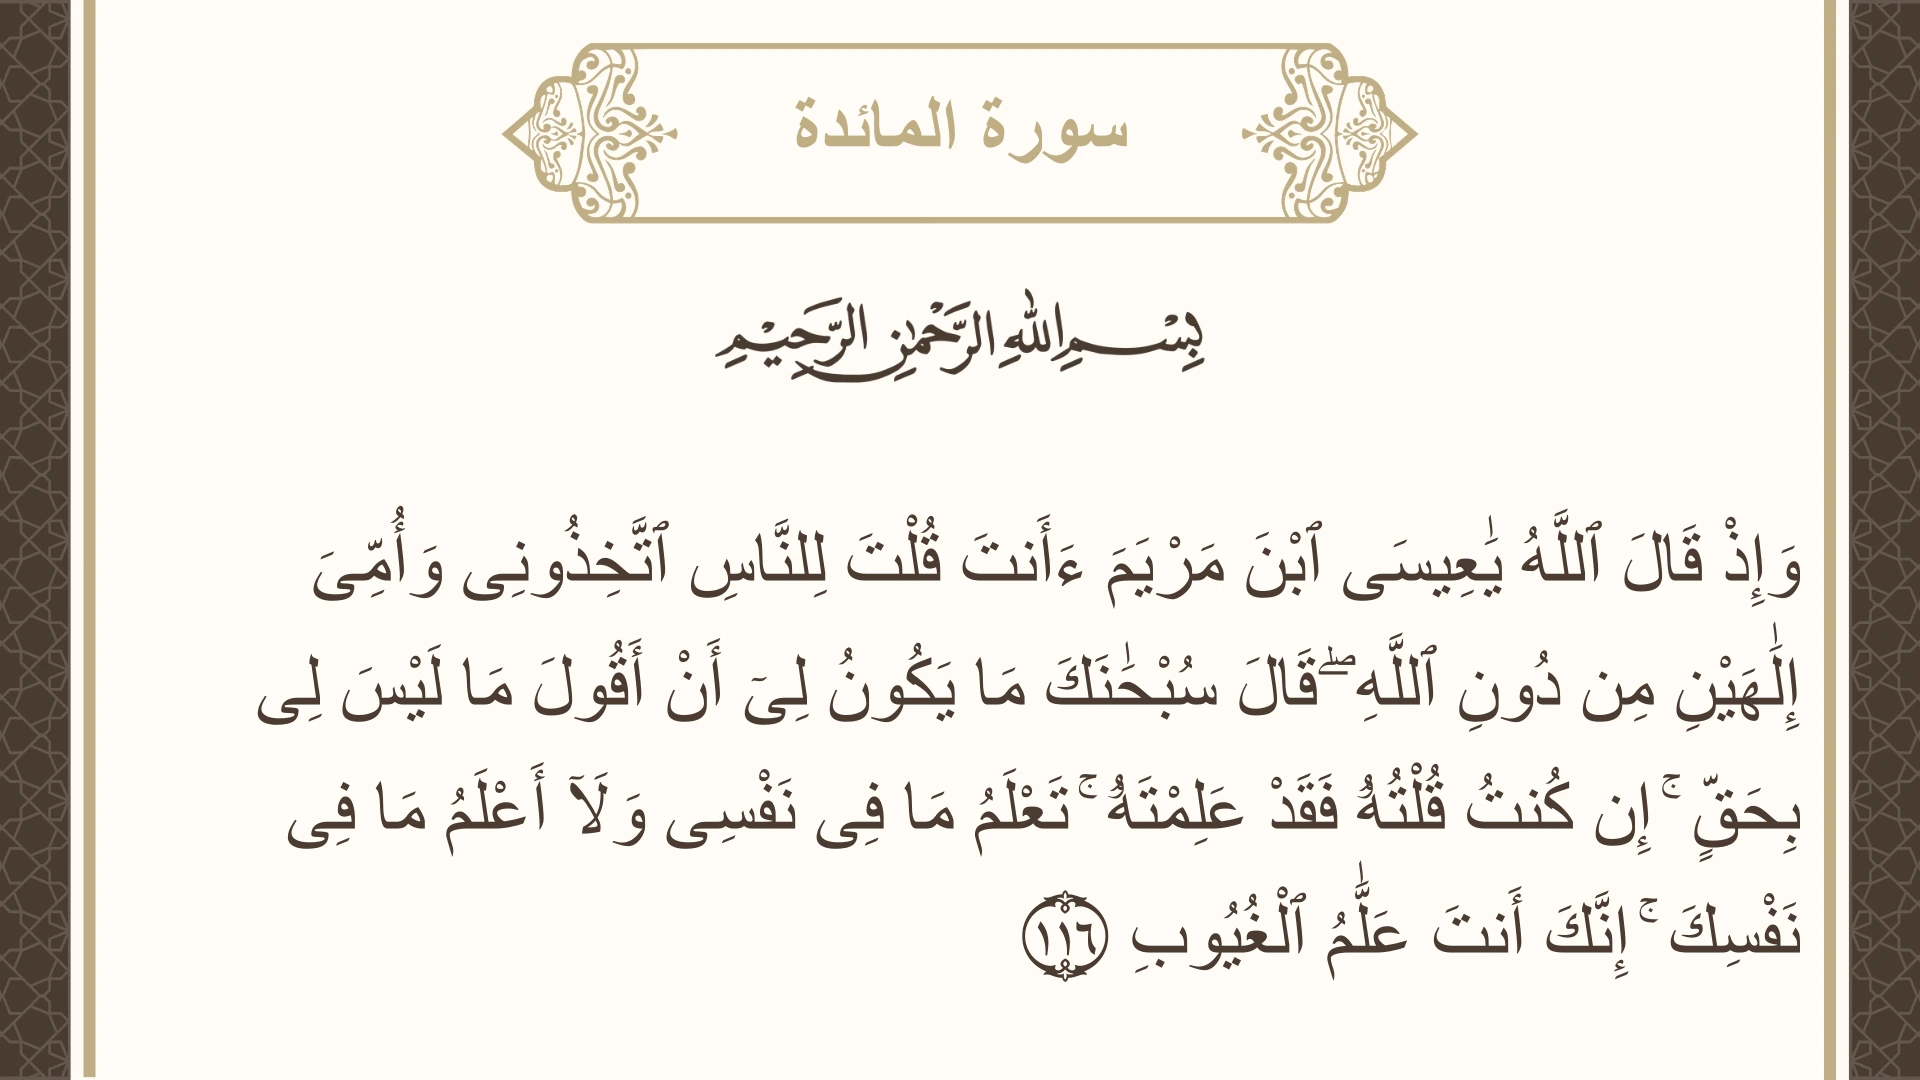 سورة المائدة
بِسْمِ اللهِ الرَّحْمٰنِ الرَّحِيْمِ
وَإِذْ قَالَ ٱللَّهُ يَٰعِيسَى ٱبْنَ مَرْيَمَ ءَأَنتَ قُلْتَ لِلنَّاسِ ٱتَّخِذُونِى وَأُمِّىَ
إِلَٰهَيْنِ مِن دُونِ ٱللَّهِ ۖ قَالَ سُبْحَٰنَكَ مَا يَكُونُ لِىٓ أَنْ أَقُولَ مَا لَيْسَ لِى
بِحَقٍّ ۚ إِن كُنتُ قُلْتُهُۥ فَقَدْ عَلِمْتَهُۥ ۚ تَعْلَمُ مَا فِى نَفْسِى وَلَآ أَعْلَمُ مَا فِى
نَفْسِكَ ۚ إِنَّكَ أَنتَ عَلَّٰمُ ٱلْغُيُوبِ ١١٦